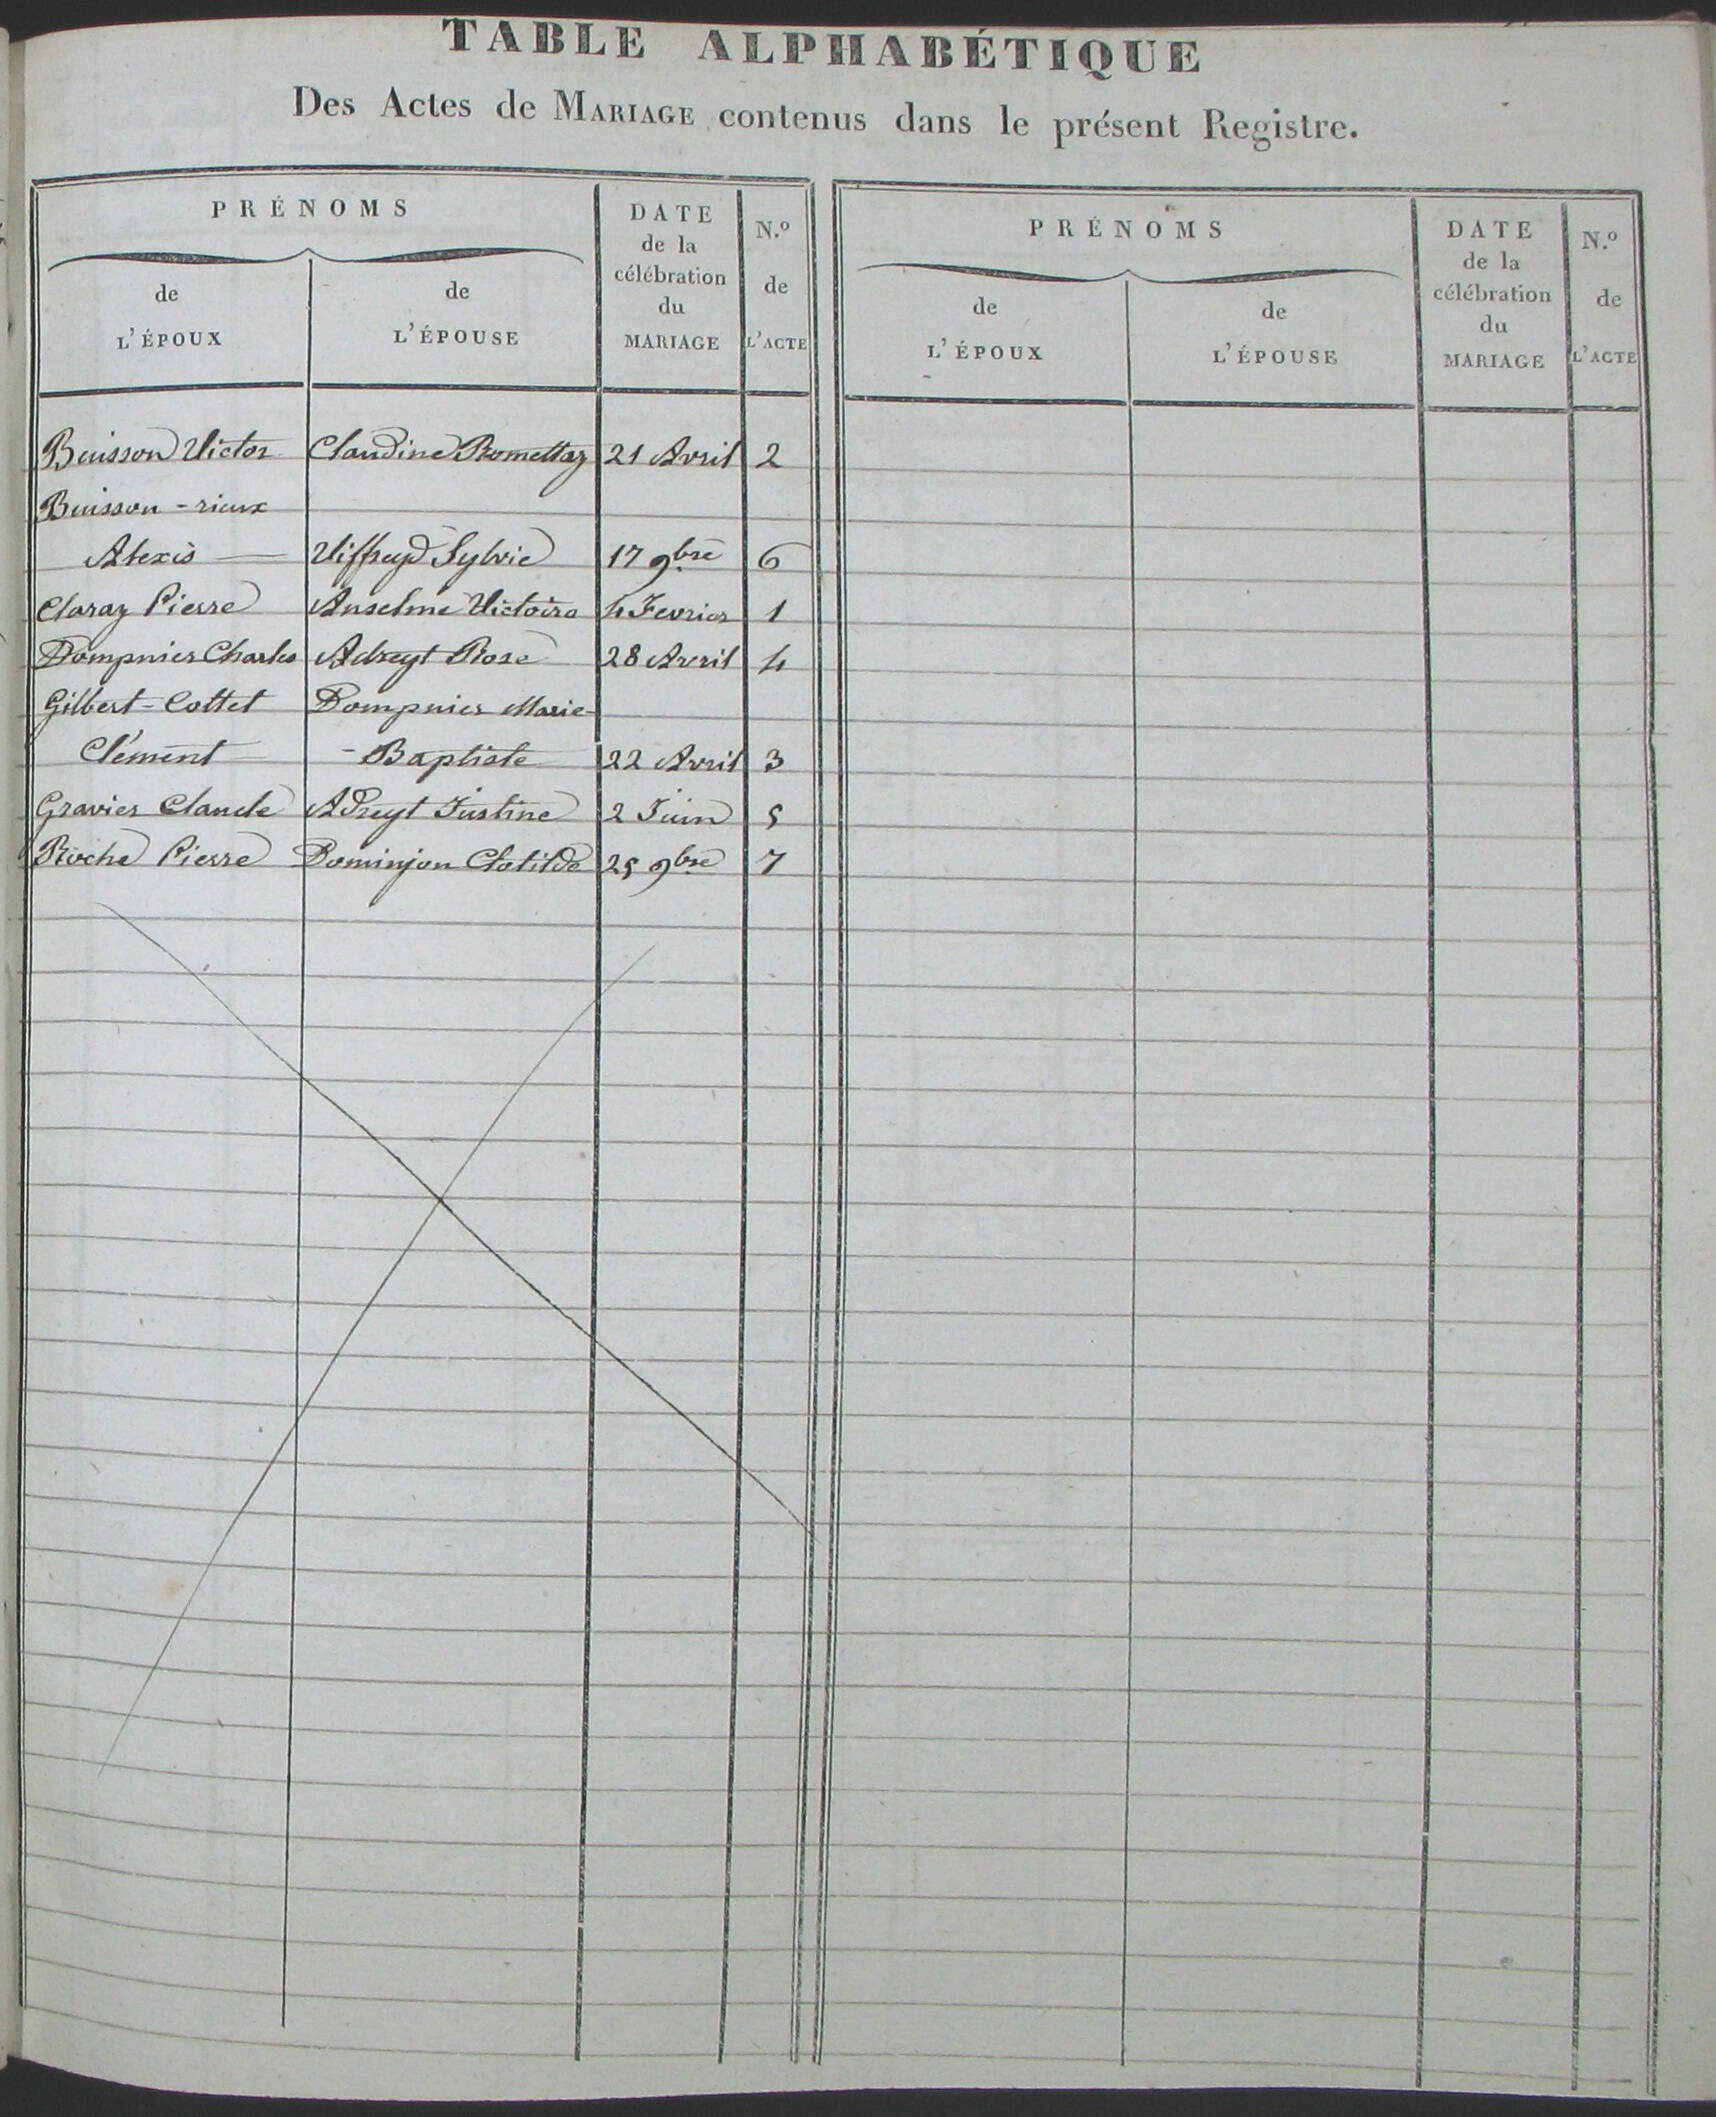 TABLE ALPHABÉTIQUE
Des Actes de MARIAGE contenus dans le présent Registre.
PRÉNOMS
de L'ÉPOUX
de L'ÉPOUSE
DATE de la célébration du MARIAGE
N.º de L'ACTE
PRÉNOMS
de L'ÉPOUX
de L'ÉPOUSE
DATE de la célébration du MARIAGE
N.º de L'ACTE
Buisson Victor Claudine Romettaz 21 Avril 2
Buisson - rieux
Alexis Viffreyd Sylvie 17 9bre 6
Claraz Pierre Anselme Victoire 4 Fevrier 1
Dompnier Charles Adreyt Rose 28 Avril 4
Gilbert-Cottet Dompnier Marie-
Clément -Baptiste 22 Avril 3
Gravier Claude Adreyt Justine 2 Juin 5
Roche Pierre Dominjon Clotilde 25 9bre 7